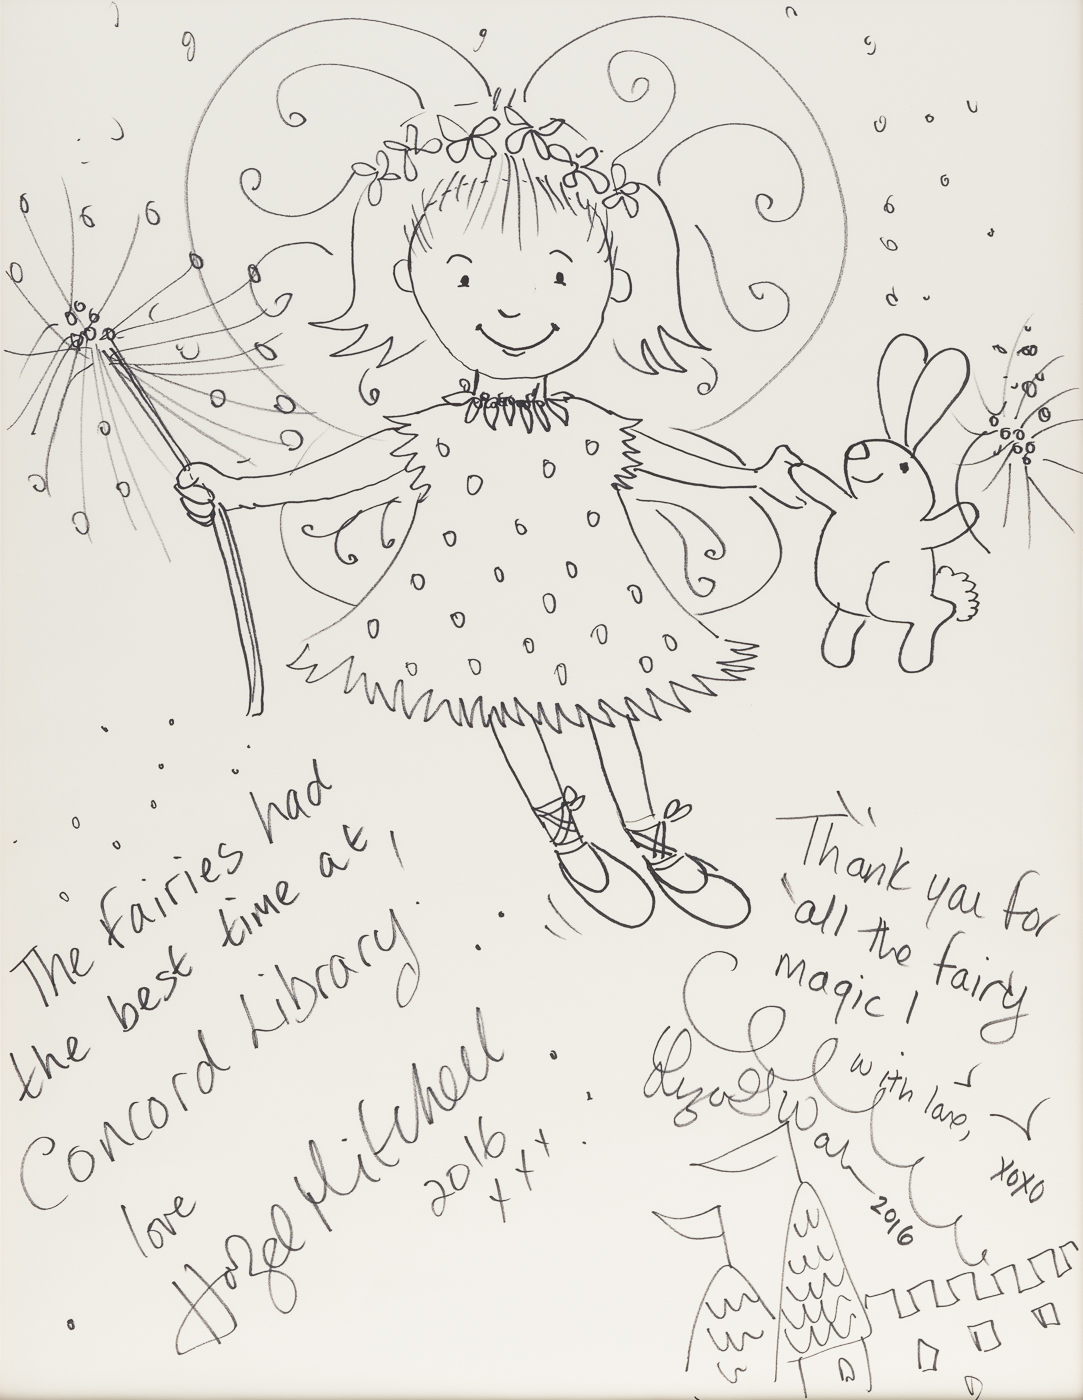 The Fairies had
the best time at
Concord Library!
love
Hazel Mitchell
2016
xxx
Thank you for
all the fairy
magic!
with love,
xoxo
2016